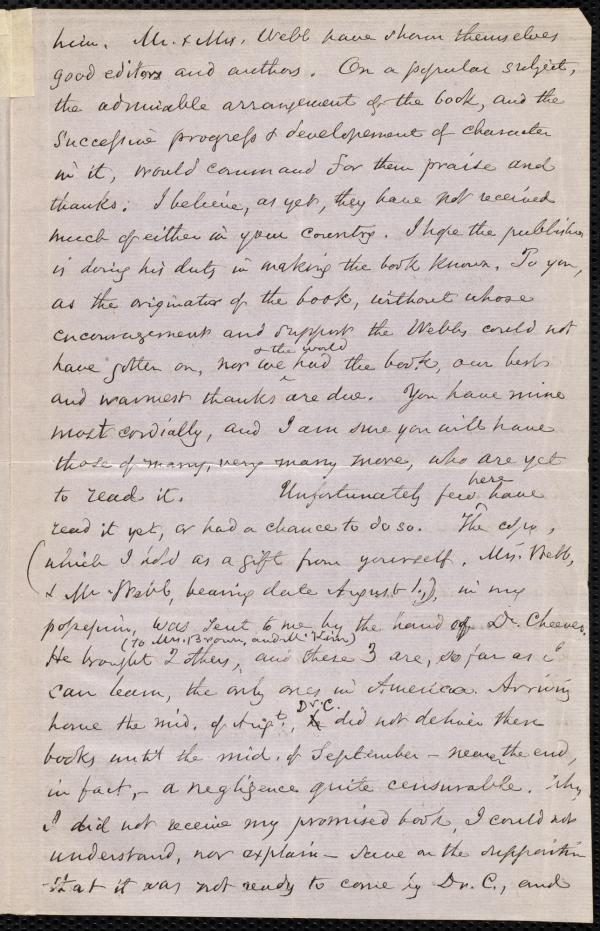 him. Mr. & Mrs. Webb have shown themselves
good editors and authors. On a popular subject,
the admirable arrangement of the book, and the
successive progress & developement of character
in it, would command for them praise and
thanks. I believe, as yet, they have not received
much of either in your country. I hope the publisher
is doing his duty in making the book known. To you,
as the originator of the book, without whose
encouragement and support the Webbs could not
have gotten on, nor we & the world had the book, our best
and warmest thanks are due. You have mine
most cordially, and I am sure you will have
those of many, very many more, who are yet
to read it. Unfortunately few here have
read it yet, or had a chance to do so. The copy,
(which I hold as a gift from yourself, Mrs. Webb,
& Mr. Webb, bearing date August 1,), in my
possession, was sent to me by the hand of Dr. Cheever.
He brought 2 others, (to Mrs. Brown, and Mr. Kim) and these 3 are, so far as I
can learn, the only ones in America. Arriving
home the mid. of Augt., Dr. C. did not deliver these
books until the mid. of September – nearer the end,
in fact, – a negligence quite censurable. Why
I did not receive my promised book, I could not
understand, nor explain – save on the supposition
that it was not ready to come by Dr. C., and